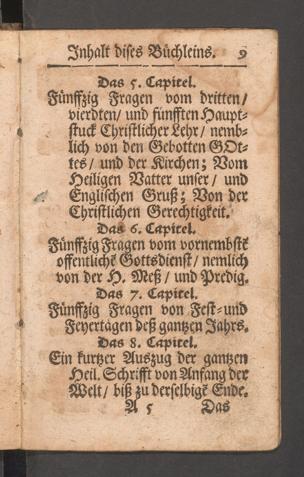 Inhalt dises Büchleins. 9
Das 5. Capitel.
Fünffzig Fragen vom dritten/
vierdten/ und fünfften Haupt-
stuck Christlicher Lehr/ nemb-
lich von den Gebotten GOt-
tes/ und der Kirchen; Vom
Heiligen Vatter unser/ und
Englischen Gruß; Von der
Christlichen Gerechtigkeit.
Das 6. Capitel.
Fünffzig Fragen vom vornembstẽ
offentlichẽ Gottsdienst/ nemlich
von der H. Meß/ und Predig.
Das 7. Capitel.
Fünffzig Fragen von Fest- und
Feyertägen deß gantzen Jahrs.
Das 8. Capitel.
Ein kurtzer Auszug der gantzen
Heil. Schrifft von Anfang der
Welt/ biß zu derselbigẽ Ende.
A 5 Das